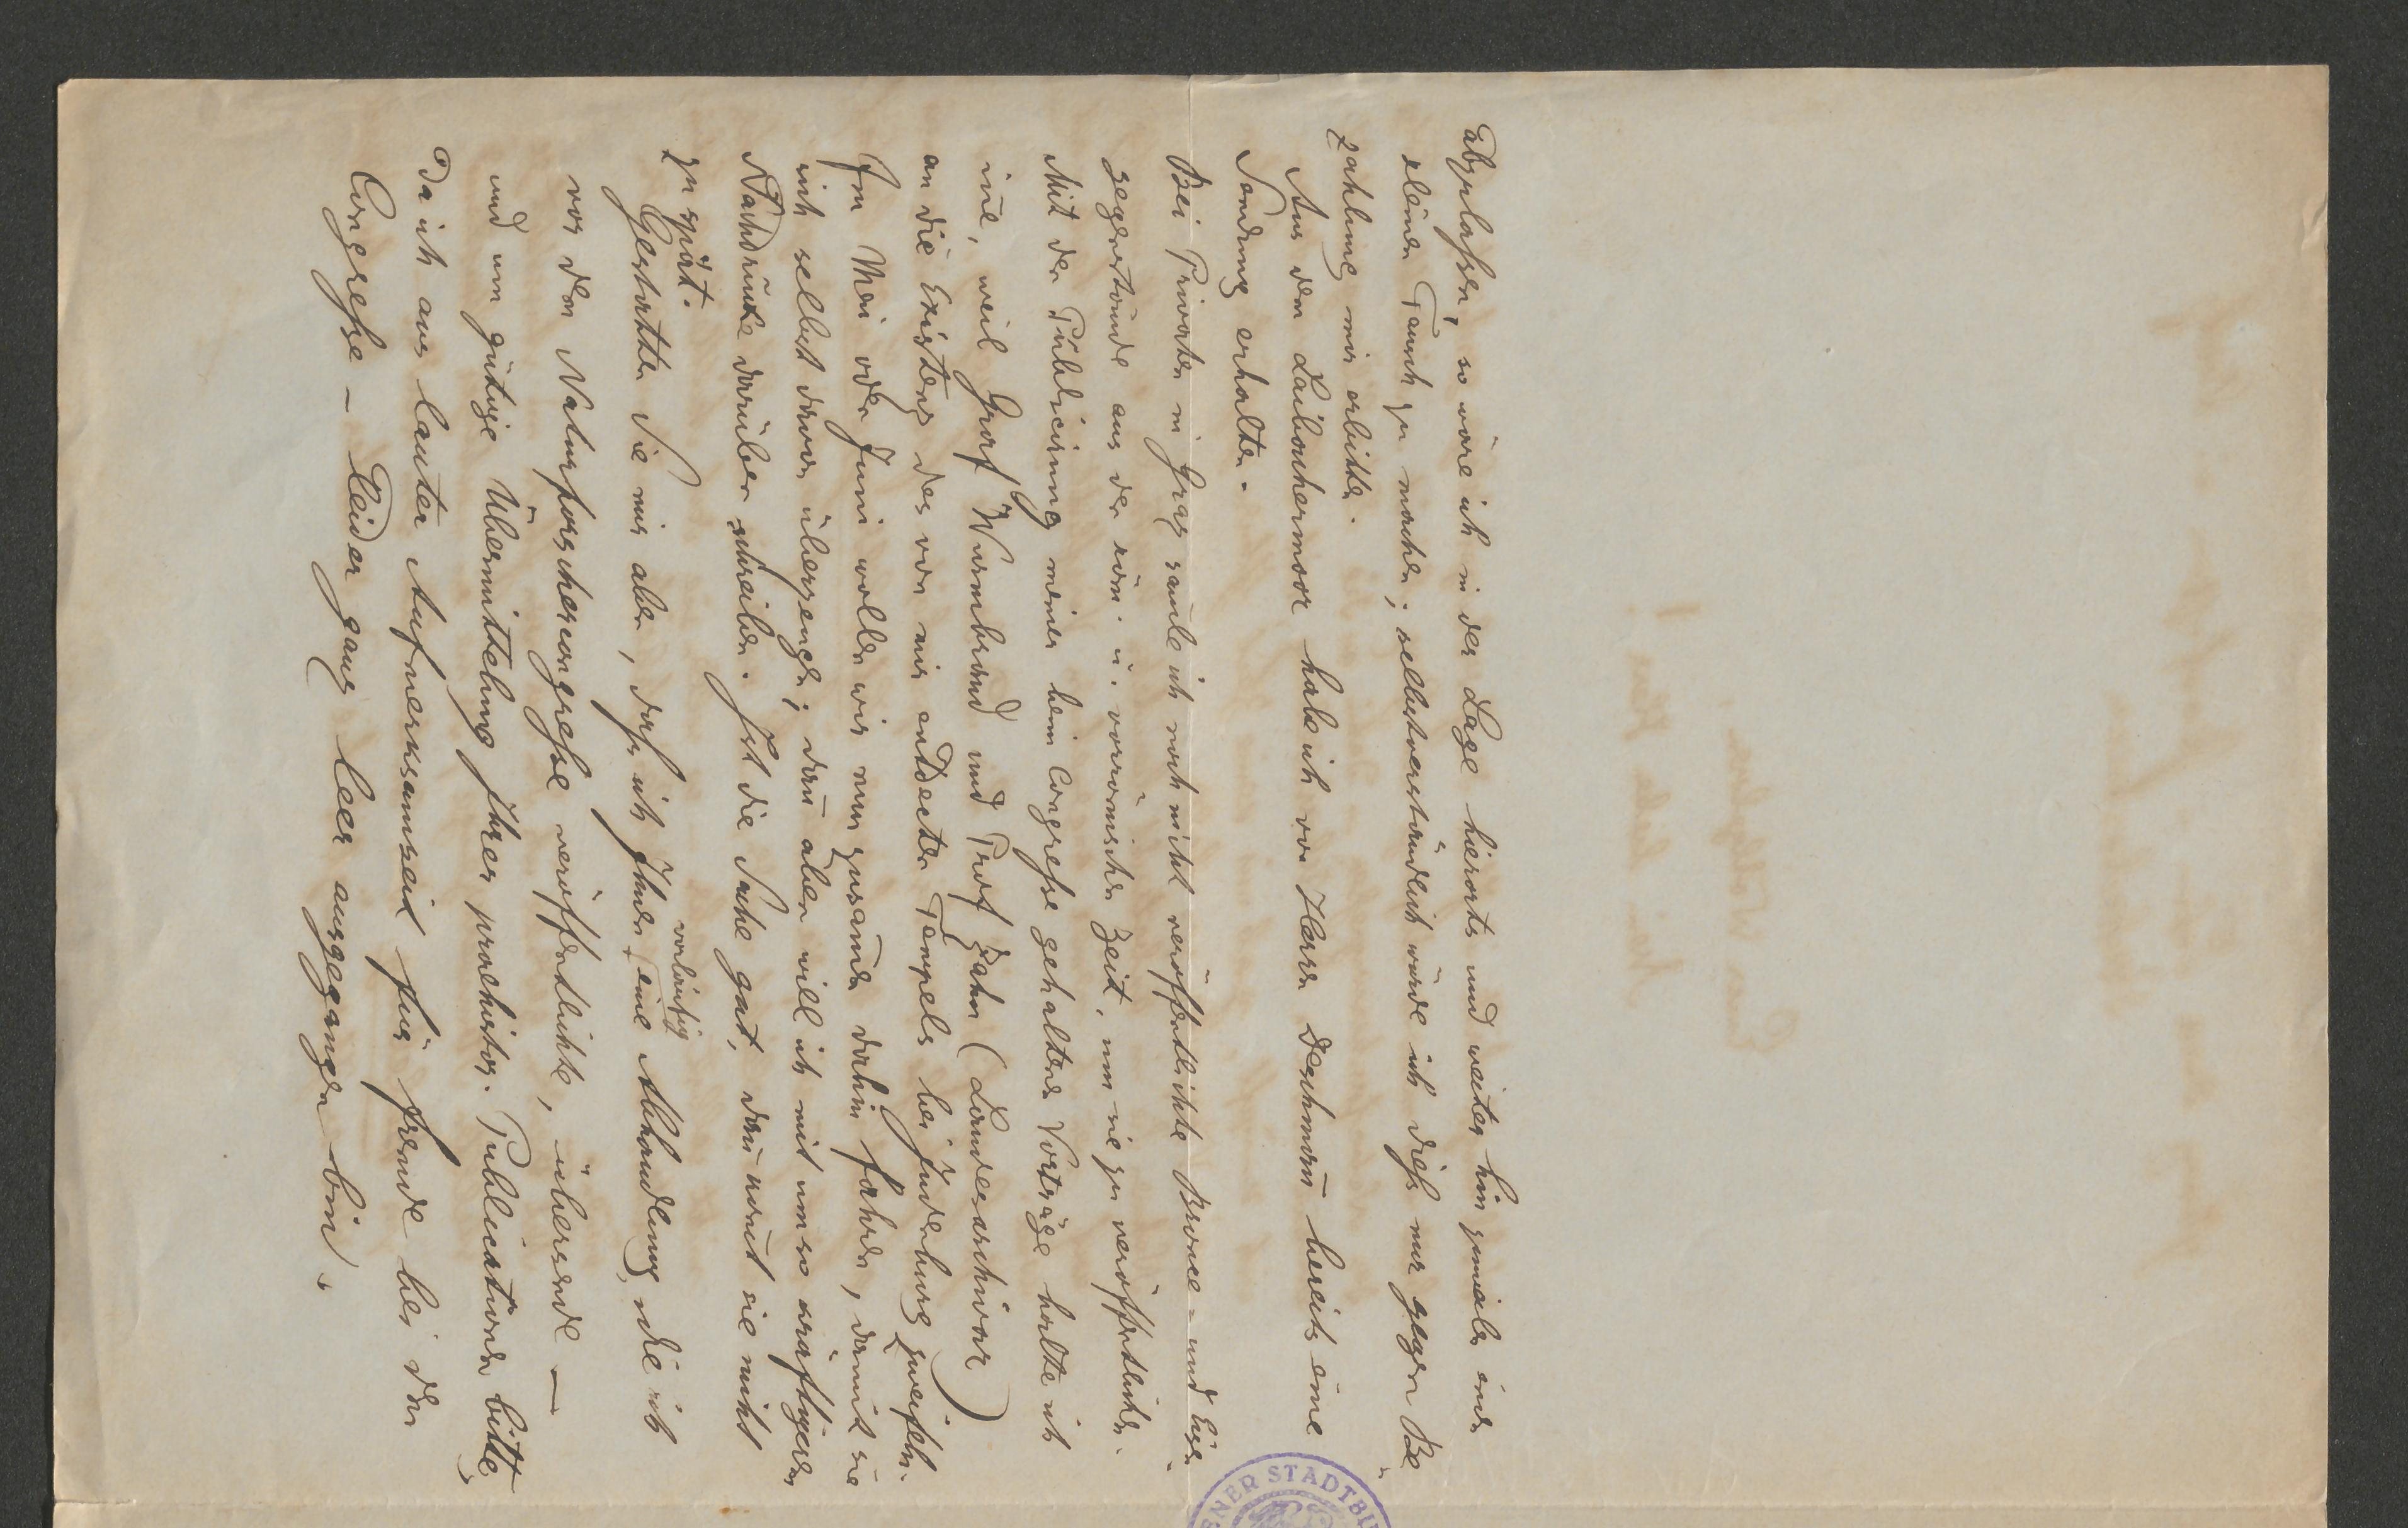 abzulassen, so wäre ich in der Lage hierorts und weiter hin zuweilen einen
kleinen Tausch zu machen; selbstverständlich würde ich dieß nur gegen Be
zahlung mir erbitten.
Aus dem Laibachermoor habe ich von Herrn Deschmañ bereits eine
Sendung erhalten.
Bei Privaten in Graz sam̄le ich noch nicht veröffentlichte Bronce- und Eisen
gegenstände aus der röm. u. vorrömischen Zeit, um sie zu veröffentlichen.
Mit der Publicirung meiner beim Congreße gehaltenen Vorträge halte ich
iñe, weil Graf Wurmbrand und Prof Zahn (Landesarchivar)
an die Existenz des von mir entdeckten Tempels bei Judenburg zweifeln.
Im Mai oder Juni wollen wir nun zusam̄en dahin fahren, damit sie
sich selbst davon überzeugen; dañ aber will ich mit umso kräftigerem
Nachdrucke darüber schreiben. Ist die Sache gut, dañ kom̄t sie nicht
zu spät.
Gestatten Sie mir aber, daß ich Ihnen vorläufig eine Abhandlung, die ich
vor dem Naturforschercongreße veröffentlichte, übersende —
und um gütige Übermittelung Ihrer praehistor. Publicationen bitte,
da ich aus lauter Aufmerksamkeit für fremde bei dem
Congreße – leider ganz leer ausgegangen bin.
ENER STADTBI